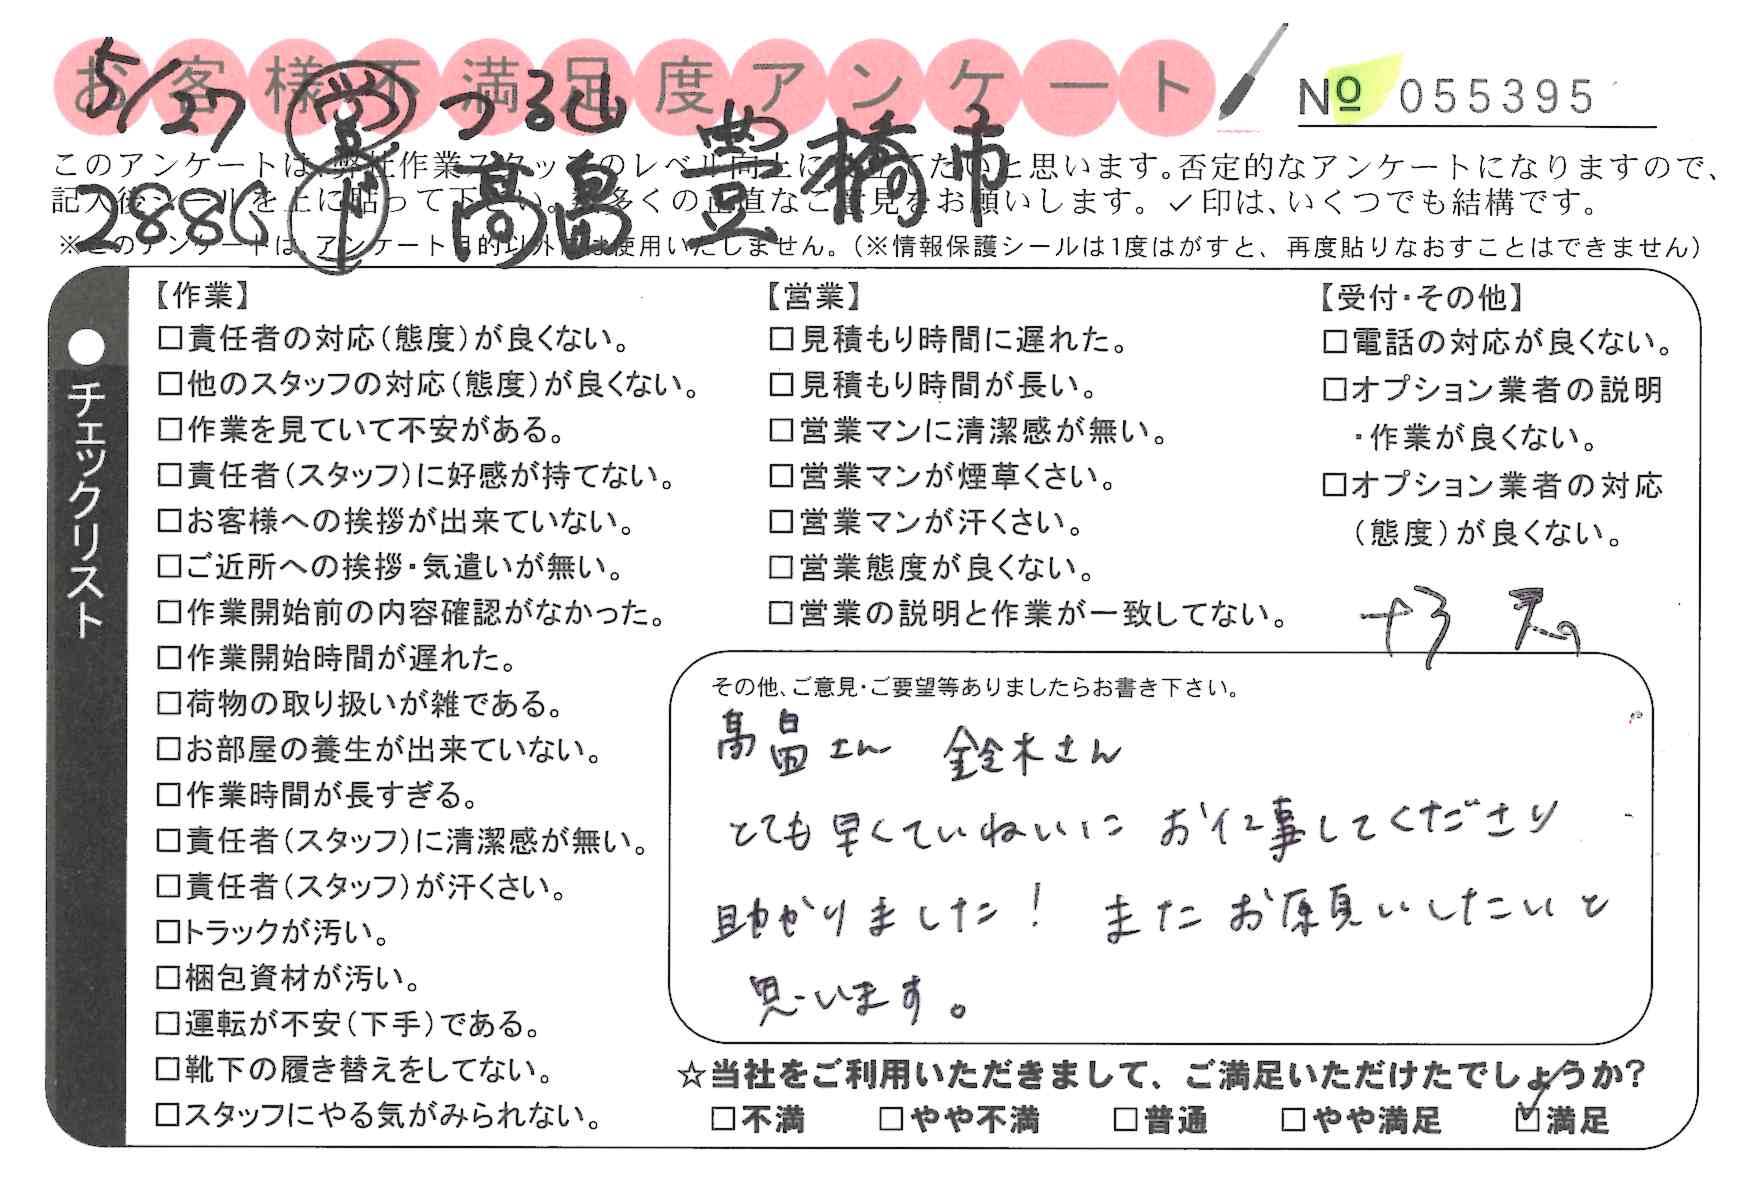 お客様不満足度アンケート
№ 055395
5/27 営 つる山
2886 作 髙畠 豊橋市
このアンケートは、弊社作業スタッフのレベル向上に役立てたいと思います。否定的なアンケートになりますので、
記入後シールを上に貼って下さい。数多くの正直なご意見をお願いします。✓印は、いくつでも結構です。
※このアンケートは、アンケート目的以外には使用いたしません。（※情報保護シールは1度はがすと、再度貼りなおすことはできません）
●チェックリスト
【作業】
□責任者の対応（態度）が良くない。
□他のスタッフの対応（態度）が良くない。
□作業を見ていて不安がある。
□責任者（スタッフ）に好感が持てない。
□お客様への挨拶が出来ていない。
□ご近所への挨拶・気遣いが無い。
□作業開始前の内容確認がなかった。
□作業開始時間が遅れた。
□荷物の取り扱いが雑である。
□お部屋の養生が出来ていない。
□作業時間が長すぎる。
□責任者（スタッフ）に清潔感が無い。
□責任者（スタッフ）が汗くさい。
□トラックが汚い。
□梱包資材が汚い。
□運転が不安（下手）である。
□靴下の履き替えをしてない。
□スタッフにやる気がみられない。
【営業】
□見積もり時間に遅れた。
□見積もり時間が長い。
□営業マンに清潔感が無い。
□営業マンが煙草くさい。
□営業マンが汗くさい。
□営業態度が良くない。
□営業の説明と作業が一致してない。
【受付・その他】
□電話の対応が良くない。
□オプション業者の説明
・作業が良くない。
□オプション業者の対応
（態度）が良くない。
その他、ご意見・ご要望等ありましたらお書き下さい。
髙畠さん 鈴木さん
とても早くていねいに お仕事してくださり
助かりました! またお願いしたいと
思います。
☆当社をご利用いただきまして、ご満足いただけたでしょうか?
□不満 □やや不満 □普通 □やや満足 ☑満足